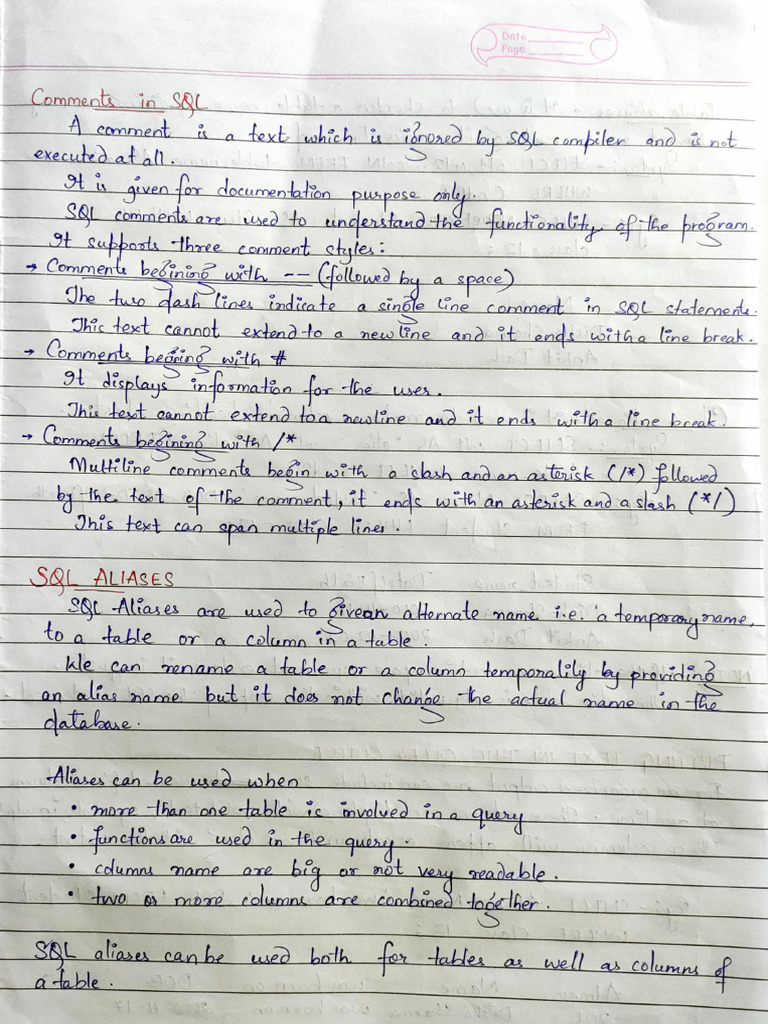 Date
Page
Comments in SQL
A comment is a text which is ignored by SQL compiler and is not
executed at all.
It is given for documentation purpose only.
SQL comments are used to understand the functionality of the program.
It supports three comment styles:
→ Comments begining with -- (followed by a space)
The two dash lines indicate a single line comment in SQL statements.
This text cannot extend to a new line and it ends with a line break.
→ Comments begining with #
It displays information for the user.
This text cannot extend to a newline and it ends with a line break.
→ Comments begining with /*
Multiline comments begin with a slash and an asterisk (/*) followed
by the text of the comment, it ends with an asterisk and a slash (*/)
This text can span multiple lines.
SQL ALIASES
SQL Aliases are used to give an alternate name i.e. a temporary name,
to a table or a column in a table.
We can rename a table or a column temporalily by providing
an alias name but it does not change the actual name in the
database.
Aliases can be used when
• more than one table is involved in a query
• functions are used in the query.
• columns name are big or not very readable.
• two or more columns are combined together.
SQL aliases can be used both for tables as well as columns of
a table.